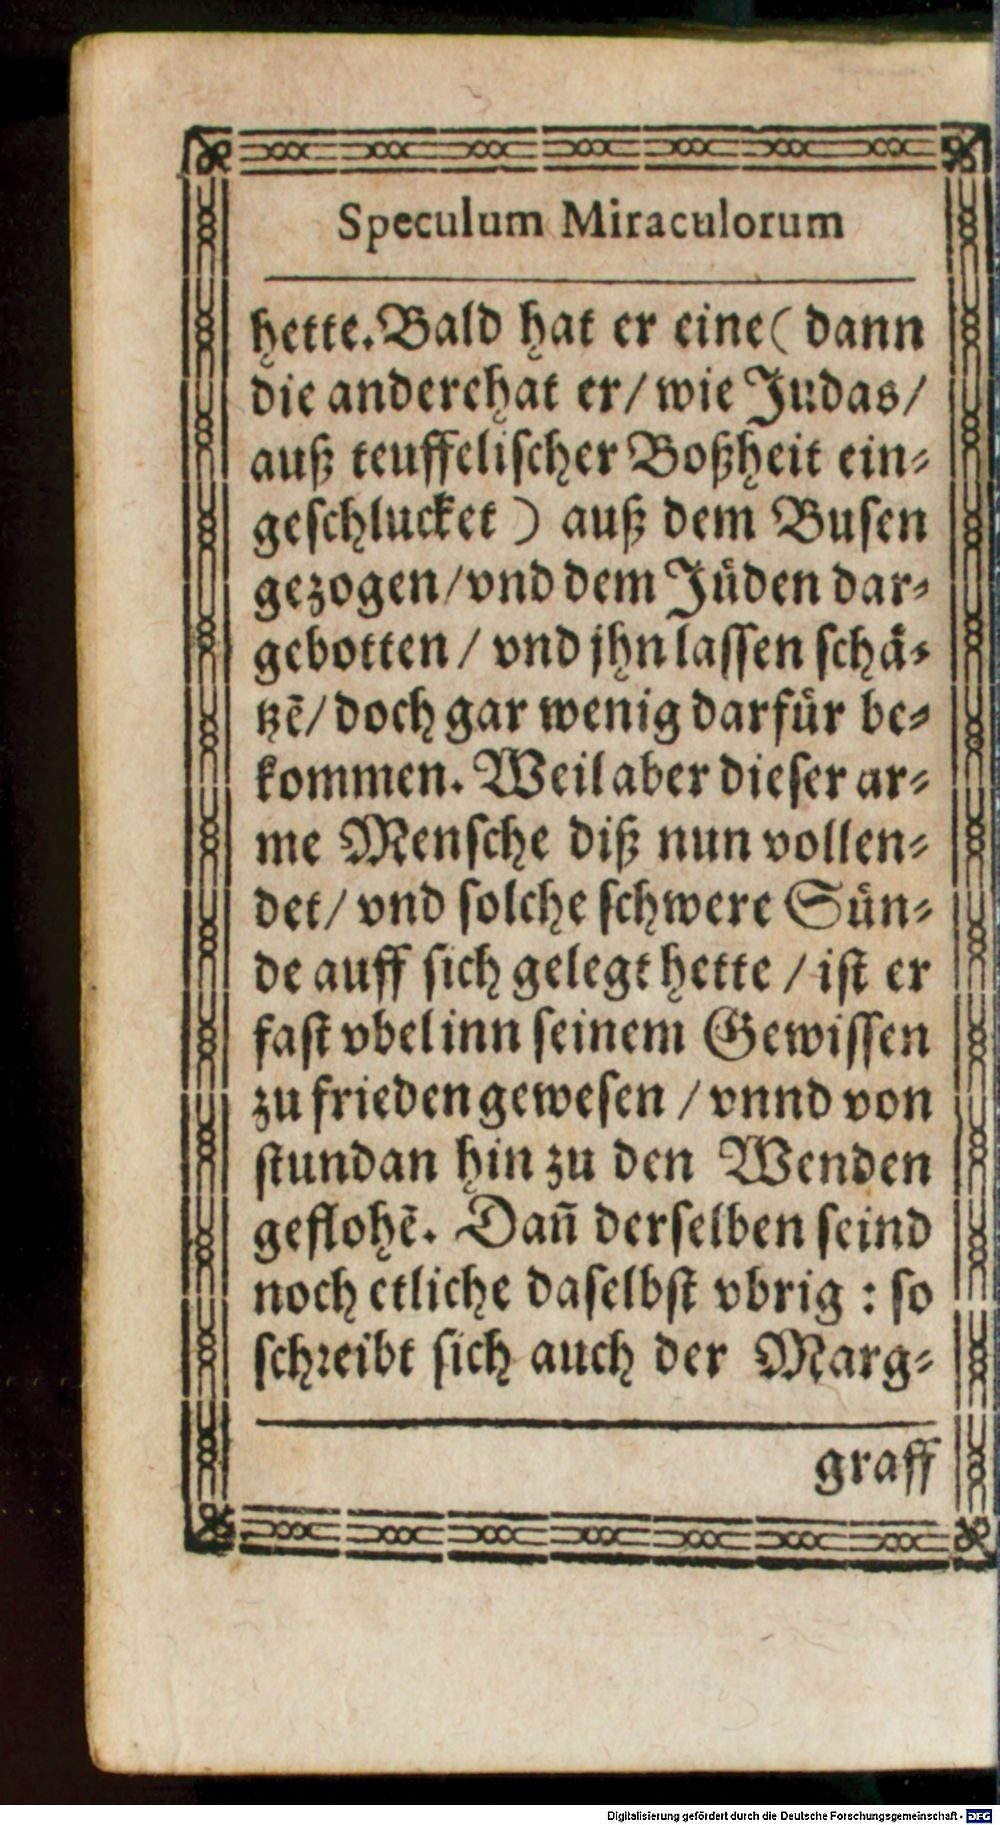 Speculum Miraculorum
hette. Bald hat er eine ( dann
die anderehat er/ wie Judas/
auß teuffelischer Boßheit ein-
geschlucket ) auß dem Busen
gezogen/vnd dem Jüden dar-
gebotten / vnd jhn lassen schä-
tzē/ doch gar wenig darfür be-
kommen. Weil aber dieser ar-
me Mensche diß nun vollen-
det/ vnd solche schwere Sün-
de auff sich gelegt hette / ist er
fast vbel inn seinem Gewissen
zu frieden gewesen / vnnd von
stundan hin zu den Wenden
geflohē. Dañ derselben seind
noch etliche daselbst vbrig : so
schreibt sich auch der Marg-
graff
Digitalisierung gefördert durch die Deutsche Forschungsgemeinschaft - DFG